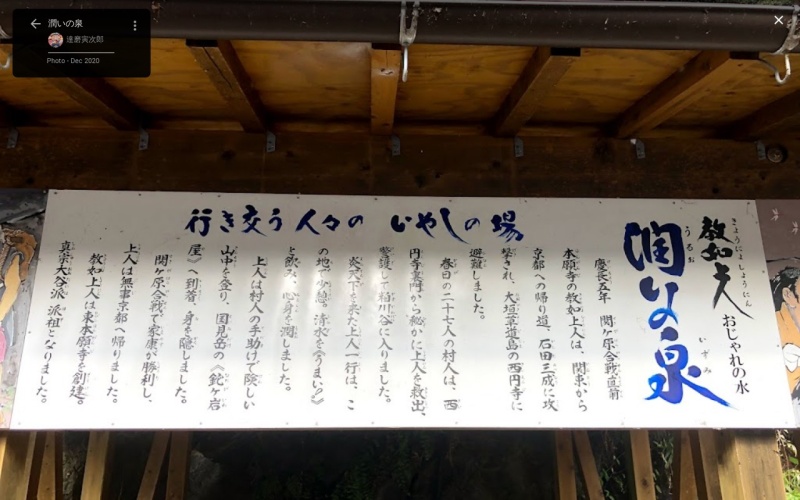 潤いの泉
達磨寅次郎
Photo - Dec 2020
行き交う人々の いやしの場
きょうにょしょうにん
教如上人
おしゃれの水
うるお
いずみ
潤いの泉
慶長五年 関ヶ原合戦直前
本願寺の教如上人は、関東から
京都への帰り道、石田三成に攻
撃され、大垣草道島の西円寺に
避難しました。
春日の二十七人の村人は、西
円寺裏門から秘かに上人を救出、
警護して粕川谷に入りました。
炎天下を来た上人一行は、こ
の地で少憩。清水を「うまい!!」
と飲み、心身を潤しました。
上人は村人の手助けで険しい
山中を登り、国見岳の《鉈ヶ岩
屋》へ到着、身を隠しました。
関ヶ原合戦、家康が勝利し、
上人は無事京都へ帰りました。
教如上人は東本願寺を創建。
真宗大谷派 派祖となりました。